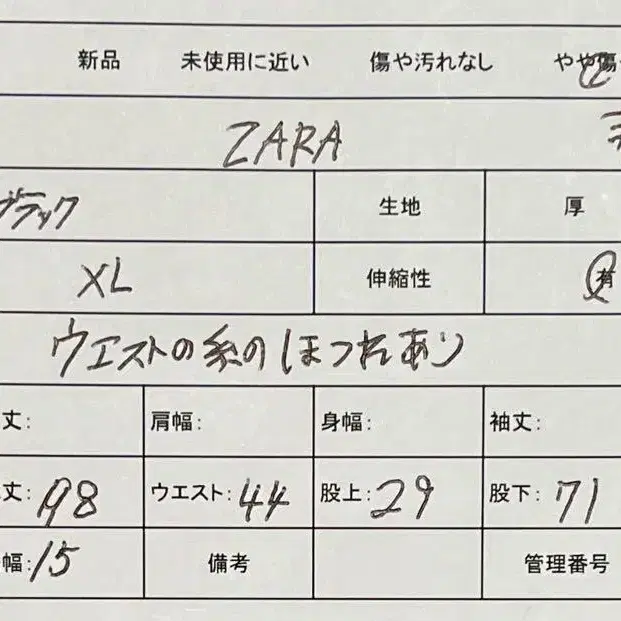 新品 未使用に近い 傷や汚れなし やや傷
ZARA
ブラック 生地 厚
XL 伸縮性 有
ウエストの糸のほつれあり
丈: 肩幅: 身幅: 袖丈:
丈:98 ウエスト:44 股上:29 股下:71
幅:15 備考 管理番号